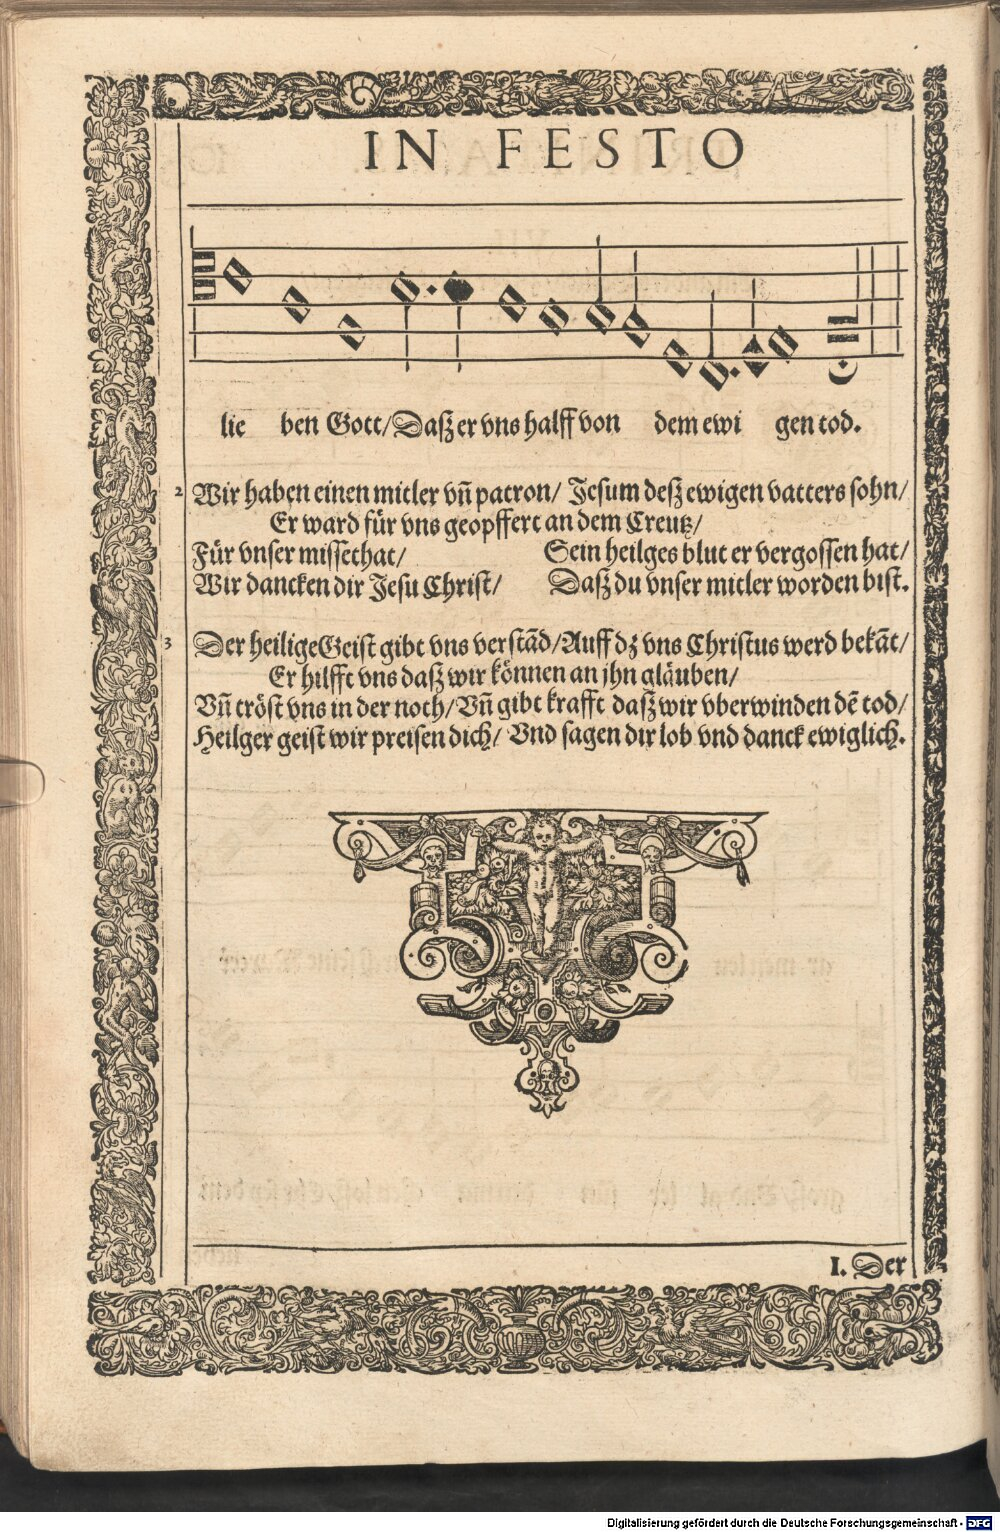 IN FESTO
lie ben Gott/Dasz er vns halff von dem ewi gen tod.
2 Wir haben einen mitler vñ patron/ Jesum desz ewigen vatters sohn/
Er ward für vns geopffert an dem Creutz/
Für vnser missethat/ Sein heilges blut er vergossen hat/
Wir dancken dir Jesu Christ/ Dasz du vnser mitler worden bist.
3 Der heilige Geist gibt vns verstãd/Auff dz vns Christus werd bekãt/
Er hilfft vns dasz wir können an jhn gläuben/
Vñ tröst vns in der noth/Vñ gibt krafft dasz wir vberwinden dẽ tod/
Heilger geist wir preisen dich/ Vnd sagen dir lob vnd danck ewiglich.
I. Der
Digitalisierung gefördert durch die Deutsche Forschungsgemeinschaft - DFG